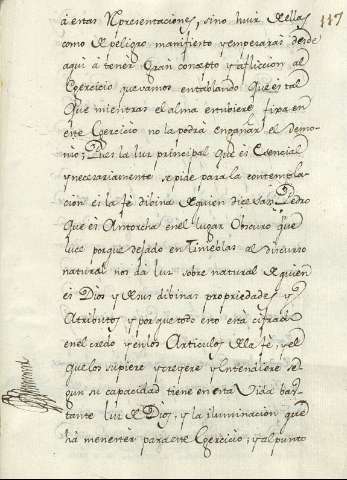 117
á estas Representaciones, sino huir de ellas
como de peligro manifiesto y empezarás desde
aqui á tener gran concepto y aficcion al
Exercicio que vamos entablando que es tal
que mientras el alma estubiere fixa en
este Exercicio no la podrá engañar el demo-
nio; Pues la luz principal que es Esencial
y necesariamente se pide para la contempla-
cion es la fé divina de quien dice San Pedro
que es Antorcha en el lugar Obscuro que
luce porque dejado en Tinieblas al discurso
natural nos dá luz sobre natural de quien
es Dios y de sus divinas propriedades y
Atributos y porque todo esto está cifrado
en el credo y en los Articulos de la fé, y el
que los supiere y creyere y Entendiere se-
gun su capacidad tiene en esta Vida bas-
tante luz de Dios; y la iluminacion que
há menester para este Exercicio; y al punto